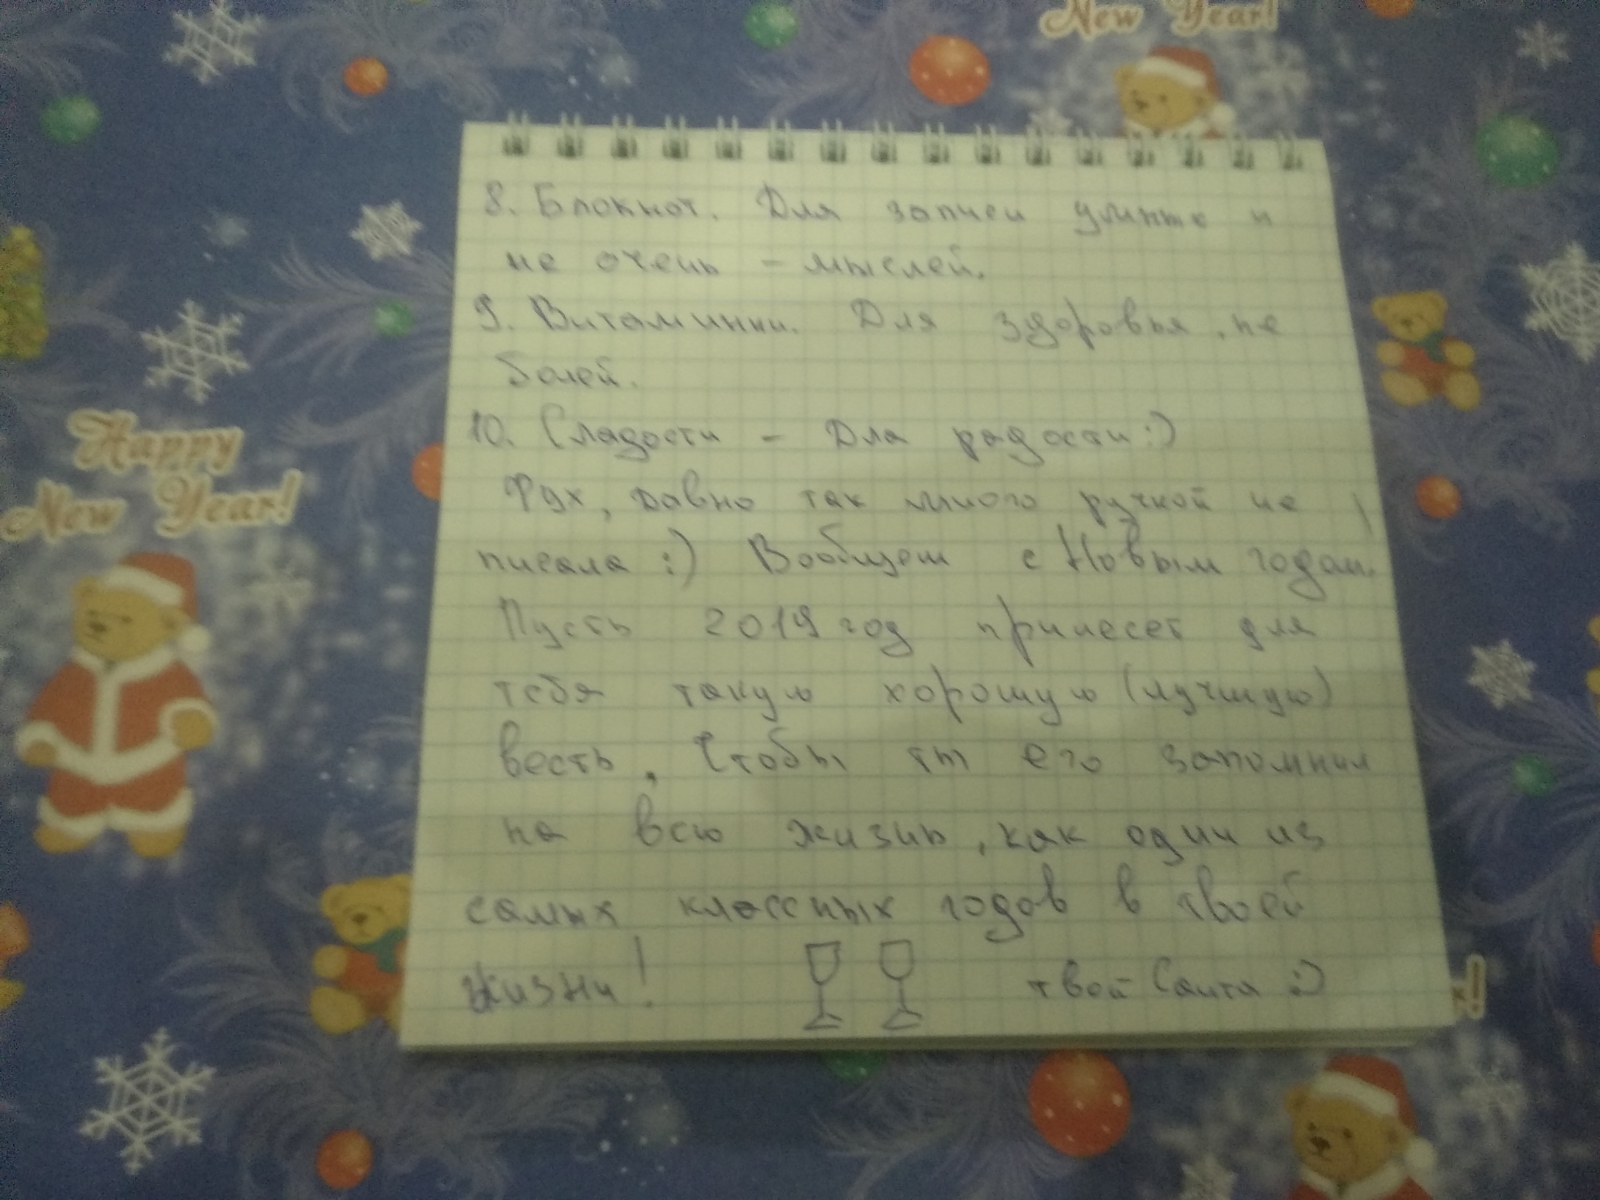 New Year!
8. Блокнот. Для записи умных и
не очень - мыслей.
9. Витаминки. Для здоровья, не
болей.
10. Сладости - Для радости :)
Фух, давно так много ручкой не
писала :) Вообщем с Новым годом!
Пусть 2019 год принесет для
тебя такую хорошую (лучшую)
весть, Чтобы ты его запомнил
на всю жизнь, как один из
самых классных годов в твоей
жизни! твой Санта :)
Happy
New Year!